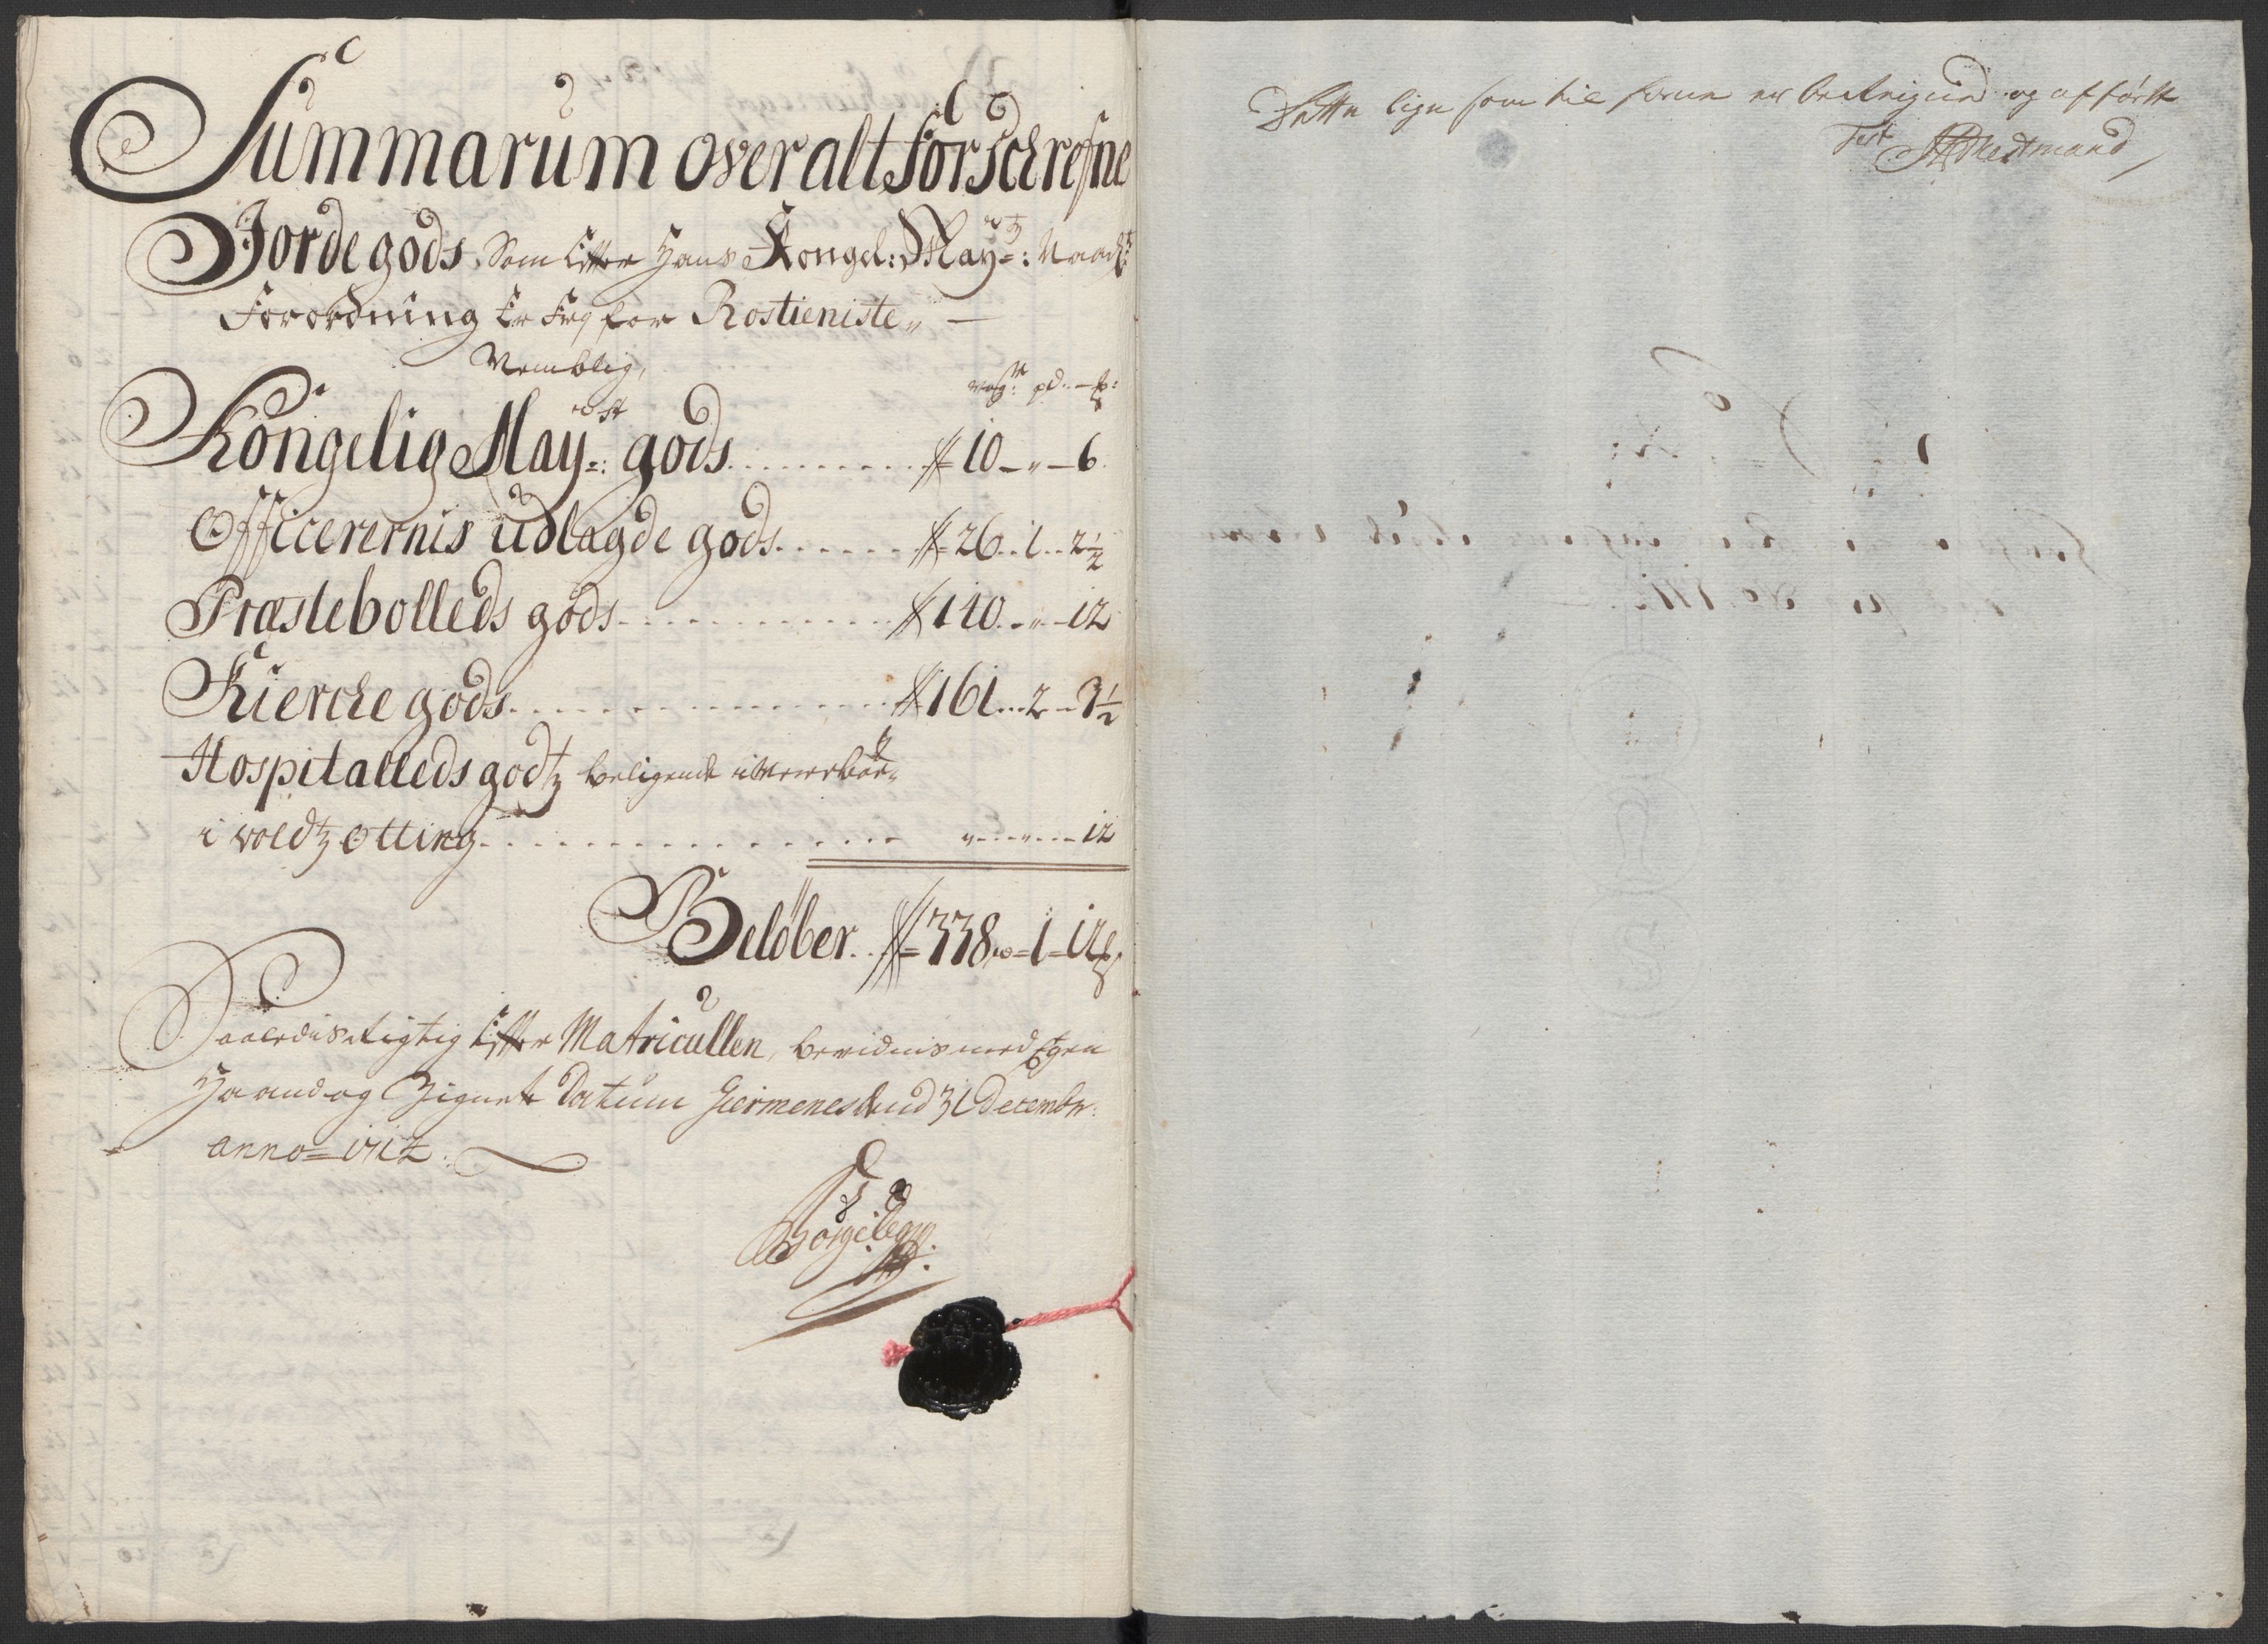 Summarum over alt forschrefne
Jordegods, Som Effter Hans Kongel: May^tz: Naad^st
Forordning Er Frj for Rostieniste,, —
Nemblig,
wog^r: pd: — ℔:
Kongelig May^st: gods . . . . . . . . . . # 10 — „ — 6
Officerernis udlagde gods . . . . . . # 26 . . 1 . . 2½
Præstebolleds gods . . . . . . . . . . # 140 . . „ — 12
Kierche gods . . . . . . . . . . . . . # 161 . . . 2 — 3½
Hospitalleds godtz beligende i
i woldtz otting . . . . . . . . . . . . „ — „ — 12
Beløber . . # 338 = 1 = 12 ℔
Saaledis Rigtig Effter Matricullen, bevidnis med Egen
Haand og Zignet Datum Giermenes dend 31 Decembr:
anno = 1712 .
Dette lige som til forne er beregned og afført
Test